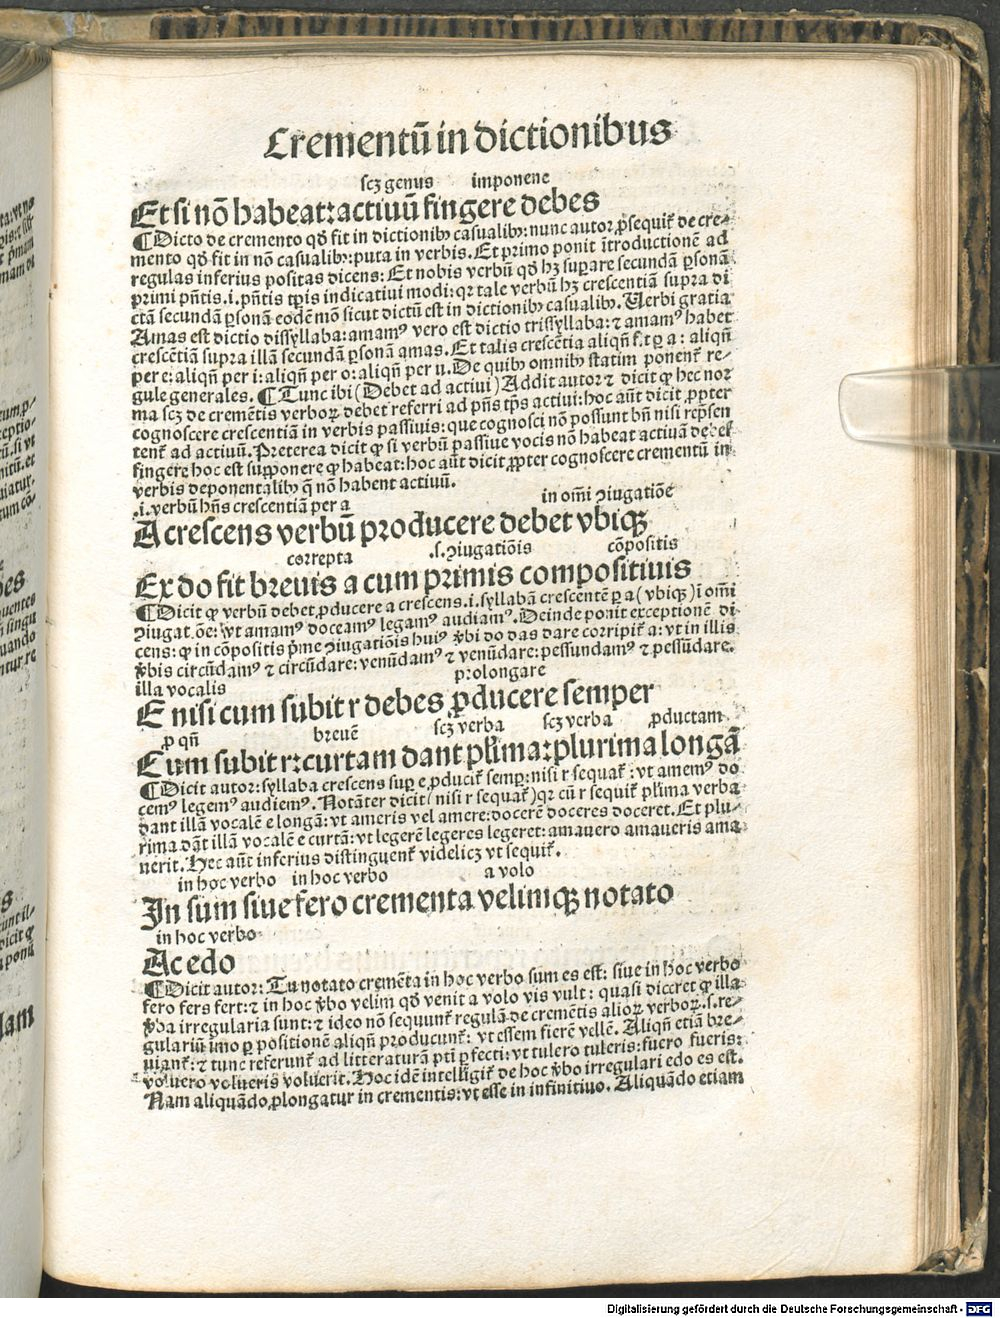 Crementū in dictionibus
scꝫ genus imponene
Et si nō habeat: actiuū fingere debes
¶ Dicto de cremento qđ fit in dictionibꝫ casualibꝫ: nunc autor ꝓsequit̄ de cre⸗
mento qđ fit in nō casualibꝫ: puta in verbis. Et primo ponit ītroductionē ad
regulas inferius positas dicens: Et nobis verbū qđ hꝫ suꝑare secundā ꝑsonā
primi pn̄tis .i. pn̄tis tꝑis indicatiui modi: qꝛ tale verbū hꝫ crescentiā supra di
ctā secundā ꝑsonā eodē mō sicut dictū est in dictionibꝫ casualibꝫ. Verbi gratia
Amas est dictio dissyllaba: amamꝰ vero est dictio trissyllaba: ⁊ amamꝰ habet
crescētiā supra illā secundā ꝑsonā amas. Et talis crescētia aliqn̄ fit ꝑ a: aliqn̄
per e: aliqn̄ per i: aliqn̄ per o: aliqn̄ per u. De quibꝫ omnibꝫ statim ponent̄ re⸗
gule generales. ¶ Tunc ibi (Debet ad actiui) Addit autor ⁊ dicit ꝙ hec nor
ma scꝫ de cremētis verboꝝ debet referri ad pn̄s tꝑs actiui: hoc aūt dicit ꝓpter
cognoscere crescentiā in verbis passiuis: que cognosci nō possunt bn̄ nisi reꝑsen
tent̄ ad actiuū. Preterea dicit ꝙ si verbū passiue vocis nō habeat actiuā debet
fingere hoc est supponere ꝙ habeat: hoc aūt dicit ꝓpter cognoscere crementū in
verbis deponentalibꝫ q̄ nō habent actiuū.
.i. verbū hn̄s crescentiā per a in om̄i ꝯiugatiōe
A crescens verbū producere debet vbiqꝫ
correpta .s. ꝯiugatiōis cōpositis
Ex do fit breuis a cum primis compositiuis
¶ Dicit ꝙ verbū debet ꝓducere a crescens .i. syllabā crescentē ꝑ a (vbiqꝫ) ī om̄i
ꝯiugatiōe: vt amamꝰ doceamꝰ legamꝰ audiamꝰ. Deinde ponit exceptionē di
cens: ꝙ in cōpositis pͥme ꝯiugatiōis huiꝰ v̄bi do das dare corripit̄ a: vt in illis
v̄bis circūdamꝰ ⁊ circūdare: venūdamꝰ ⁊ venūdare: pessundamꝰ ⁊ pessūdare.
illa vocalis prolongare
E nisi cum subit r debes ꝓducere semper
ꝓ qn̄ breuē scꝫ verba scꝫ verba ꝓductam
Cum subit r: curtam dant pl̄ima: plurima longā
¶ Dicit autor: syllaba crescens suꝑ e ꝓducit̄ semꝑ: nisi r sequat̄: vt amemꝰ do
cemꝰ legemꝰ audiemꝰ. Notāter dicit (nisi r sequat̄) qꝛ cū r sequit̄ pl̄ima verba
dant illā vocalē e longā: vt ameris vel amere: docerē doceres doceret. Et plu⸗
rima dāt illā vocalē e curtā: vt legerē legeres legeret: amauero amaueris ama
uerit. Hec aūt inferius distinguent̄ videlicꝫ vt sequit̄.
in hoc verbo in hoc verbo a volo
In sum siue fero crementa velimqꝫ notato
in hoc verbo
Ac edo
¶ Dicit autor: Tu notato cremēta in hoc verbo sum es est: siue in hoc verbo
fero fers fert: ⁊ in hoc v̄bo velim qđ venit a volo vis vult: quasi diceret ꝙ illa
v̄ba irregularia sunt: ⁊ ideo nō sequunt̄ regulā de cremētis alioꝝ verboꝝ .s. re⸗
gulariū īmo ꝑ positionē aliqn̄ producunt̄: vt essem fierē vellē. Aliqn̄ etiā bre⸗
uiant̄: ⁊ tunc referunt̄ ad litteraturā pt̄i ꝑfecti: vt tulero tuleris: fuero fueris:
voluero volueris voluerit. Hoc idē intelligit̄ de hoc v̄bo irregulari edo es est.
Nam aliquādo ꝓlongatur in crementis: vt esse in infinitiuo. Aliquādo etiam
Digitalisierung gefördert durch die Deutsche Forschungsgemeinschaft - DFG